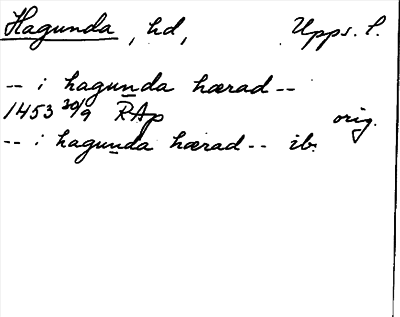 Hagunda, hd, Upps. l.
-- i hagunda hærad --
1453 20/9 RAp orig.
-- i hagunda hærad -- ib.